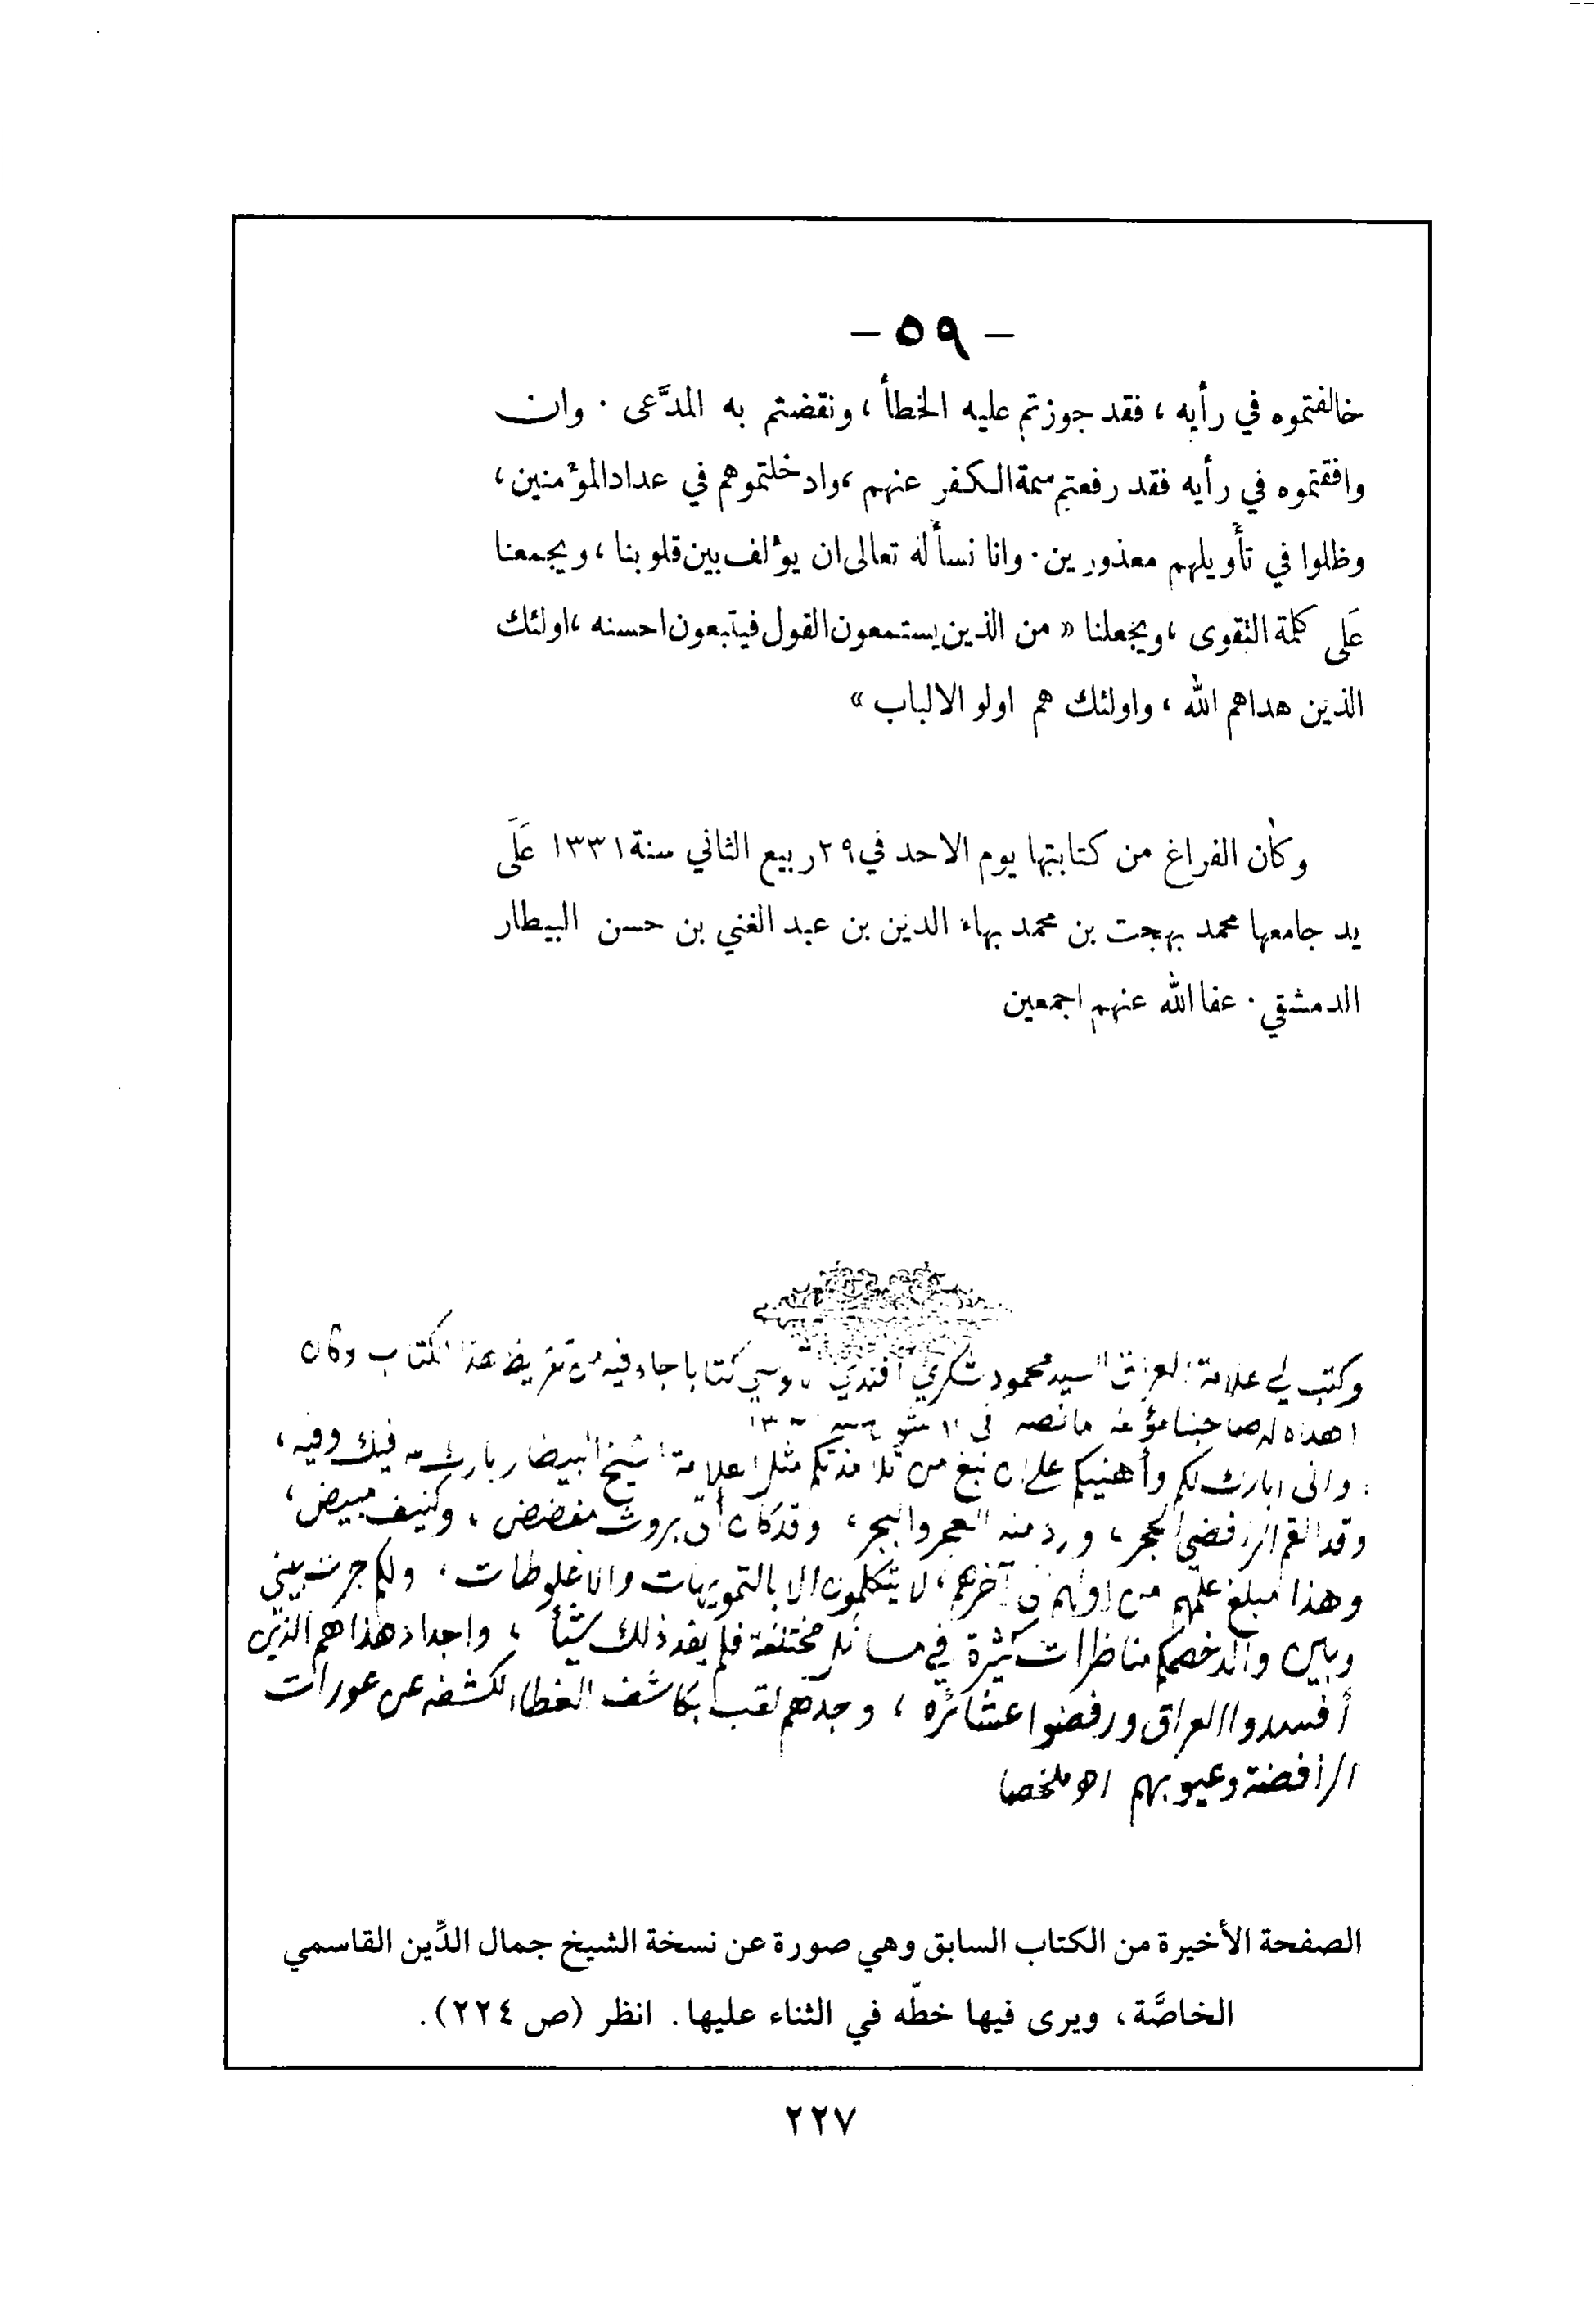 — ٥٩ —
خالفتموه في رأيه ، فقد جوزتم عليه الخطأ ، ونقضتم به المدَّعى . وان
وافقتموه في رأيه فقد رفعتم سمة الكفر عنهم ، وادخلتموهم في عداد المؤمنين ،
وظلوا في تأويلهم معذورين . وانا نسأله تعالى ان يؤلف بين قلوبنا ، ويجمعنا
عَلَى كلمة التقوى ، ويجعلنا « من الذين يستمعون القول فيتبعون احسنه ، اولئك
الذين هداهم الله ، واولئك هم اولو الالباب »
وكان الفراغ من كتابتها يوم الاحد في ٢٩ ربيع الثاني سنة ١٣٣١ عَلَى
يد جامعها محمد بهجت بن محمد بهاء الدين بن عبد الغني بن حسن البيطار
الدمشقي . عفا الله عنهم اجمعين
وكتب لي علامة العراق السيد محمود شكري افندي كتابا جاء فيه من تقريظ هذا الكتاب وكان
اهداه له صاحبنا مؤلفه ما نصه في
واني ابارك لكم وأهنيكم على ان نبغ من تلامذتكم مثل العلامة الشيخ البيطار بارك الله فيك وفيه ،
وقد القم الرافضي الحجر ، ورد منه العجر والبجر ، وقد كان أتى بروث مفضض ، وكنيف مبيض ،
وهذا مبلغ علمهم من اولهم الى آخرهم ، لا يتكلمون الا بالتمويهات والاغلوطات ، ولكم جرت بيني
وبين والد خصمكم مناظرات كثيرة في مسائل مختلفة فلم يفد ذلك شيأ ، واجداد هذا هم الذين
أفسدوا العراق ورفضوا عشائره ، وجدهم لقب بكاشف الغطاء لكشفه عن عورات
الرافضة وعيوبهم اهـ ملخصا
الصفحة الأخيرة من الكتاب السابق وهي صورة عن نسخة الشيخ جمال الدِّين القاسمي
الخاصَّة ، ويرى فيها خطّه في الثناء عليها . انظر (ص ٢٢٤) .
٢٢٧